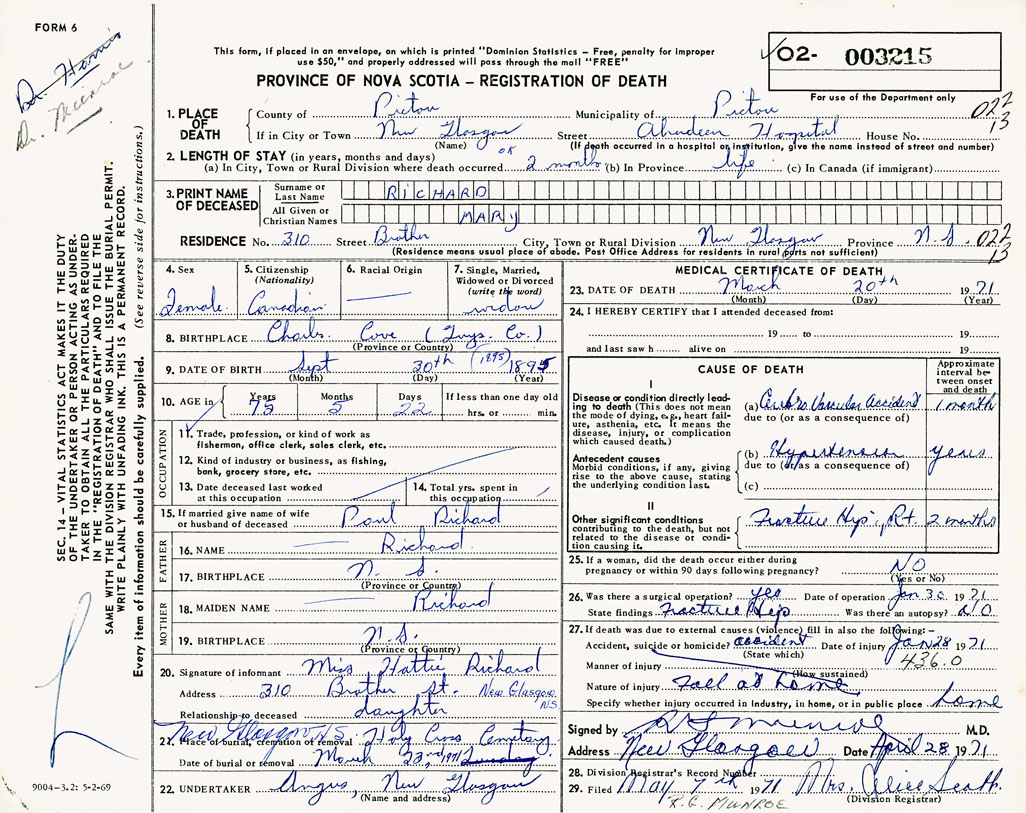 FORM 6
Dr. Harris
Dr. Munroe
This form, if placed in an envelope, on which is printed "Dominion Statistics – Free, penalty for improper
use $50," and properly addressed will pass through the mail "FREE"
PROVINCE OF NOVA SCOTIA – REGISTRATION OF DEATH
✓02- 003215
For use of the Department only
022
13
1. PLACE OF DEATH
County of Pictou Municipality of Pictou
If in City or Town New Glasgow Street Aberdeen Hospital House No.
(Name) (If death occurred in a hospital or institution, give the name instead of street and number)
OK
2. LENGTH OF STAY (in years, months and days)
(a) In City, Town or Rural Division where death occurred 2 months (b) In Province life (c) In Canada (if immigrant)
3. PRINT NAME OF DECEASED
Surname or Last Name RICHARD
All Given or Christian Names MARY
RESIDENCE No. 310 Street Brother City, Town or Rural Division New Glasgow Province N.S. 022
13
(Residence means usual place of abode. Post Office Address for residents in rural parts not sufficient)
4. Sex
Female
5. Citizenship
(Nationality)
Canadian
6. Racial Origin
7. Single, Married,
Widowed or Divorced
(write the word)
widow
8. BIRTHPLACE Charls. Cove (Guys. Co.)
(Province or Country)
9. DATE OF BIRTH Sept 30th (1895) 1895
(Month) (Day) (Year)
10. AGE in
Years 75
Months 5
Days 22
If less than one day old
hrs. or min.
OCCUPATION
11. Trade, profession, or kind of work as
fisherman, office clerk, sales clerk, etc.
12. Kind of industry or business, as fishing,
bank, grocery store, etc.
13. Date deceased last worked
at this occupation
14. Total yrs. spent in
this occupation
15. If married give name of wife
or husband of deceased Paul Richard
FATHER
16. NAME Richard
17. BIRTHPLACE N. S.
(Province or Country)
MOTHER
18. MAIDEN NAME Richard
19. BIRTHPLACE N.S.
(Province or Country)
20. Signature of informant Miss Hattie Richard
Address 310 Brother St. New Glasgow N.S.
Relationship to deceased daughter
New Glasgow N.S.
21. Place of burial, cremation or removal Holy Cross Cemetary
Date of burial or removal March 23rd, 1971
22. UNDERTAKER Angus, New Glasgow
(Name and address)
MEDICAL CERTIFICATE OF DEATH
23. DATE OF DEATH March 20th 1971
(Month) (Day) (Year)
24. I HEREBY CERTIFY that I attended deceased from:
19 to 19
and last saw h alive on 19
CAUSE OF DEATH
Approximate
interval be-
tween onset
and death
I
Disease or condition directly lead-
ing to death (This does not mean
the mode of dying, e.g., heart fail-
ure, asthenia, etc. It means the
disease, injury, or complication
which caused death.)
(a) Cerebro Vascular Accident 1 month
due to (or as a consequence of)
Antecedent causes
Morbid conditions, if any, giving
rise to the above cause, stating
the underlying condition last.
(b) Hypertension years
due to (or as a consequence of)
(c)
II
Other significant conditions
contributing to the death, but not
related to the disease or condi-
tion causing it.
Fracture Hip, Rt 2 months
25. If a woman, did the death occur either during
pregnancy or within 90 days following pregnancy? NO
(Yes or No)
26. Was there a surgical operation? yes Date of operation Jan 30 1971
State findings Fracture Hip Was there an autopsy? NO
27. If death was due to external causes (violence) fill in also the following:–
Accident, suicide or homicide? accident Date of injury Jan 28 1971
(State which) 436.0
Manner of injury
(How sustained)
Nature of injury Fall at home
Specify whether injury occurred in industry, in home, or in public place home
Signed by R G Munroe M.D.
Address New Glasgow Date April 28 1971
28. Division Registrar's Record Number
29. Filed May 7 1971 Mrs. Alice Scott.
R.G. MUNROE (Division Registrar)
SEC. 14 – VITAL STATISTICS ACT MAKES IT THE DUTY
OF THE UNDERTAKER OR PERSON ACTING AS UNDER-
TAKER TO OBTAIN ALL THE PARTICULARS REQUIRED
IN THE "REGISTRATION OF DEATH" AND TO FILE THE
SAME WITH THE DIVISION REGISTRAR WHO SHALL ISSUE THE BURIAL PERMIT.
WRITE PLAINLY WITH UNFADING INK. THIS IS A PERMANENT RECORD.
Every item of information should be carefully supplied. (See reverse side for instructions.)
9004-3.2: 5-2-69